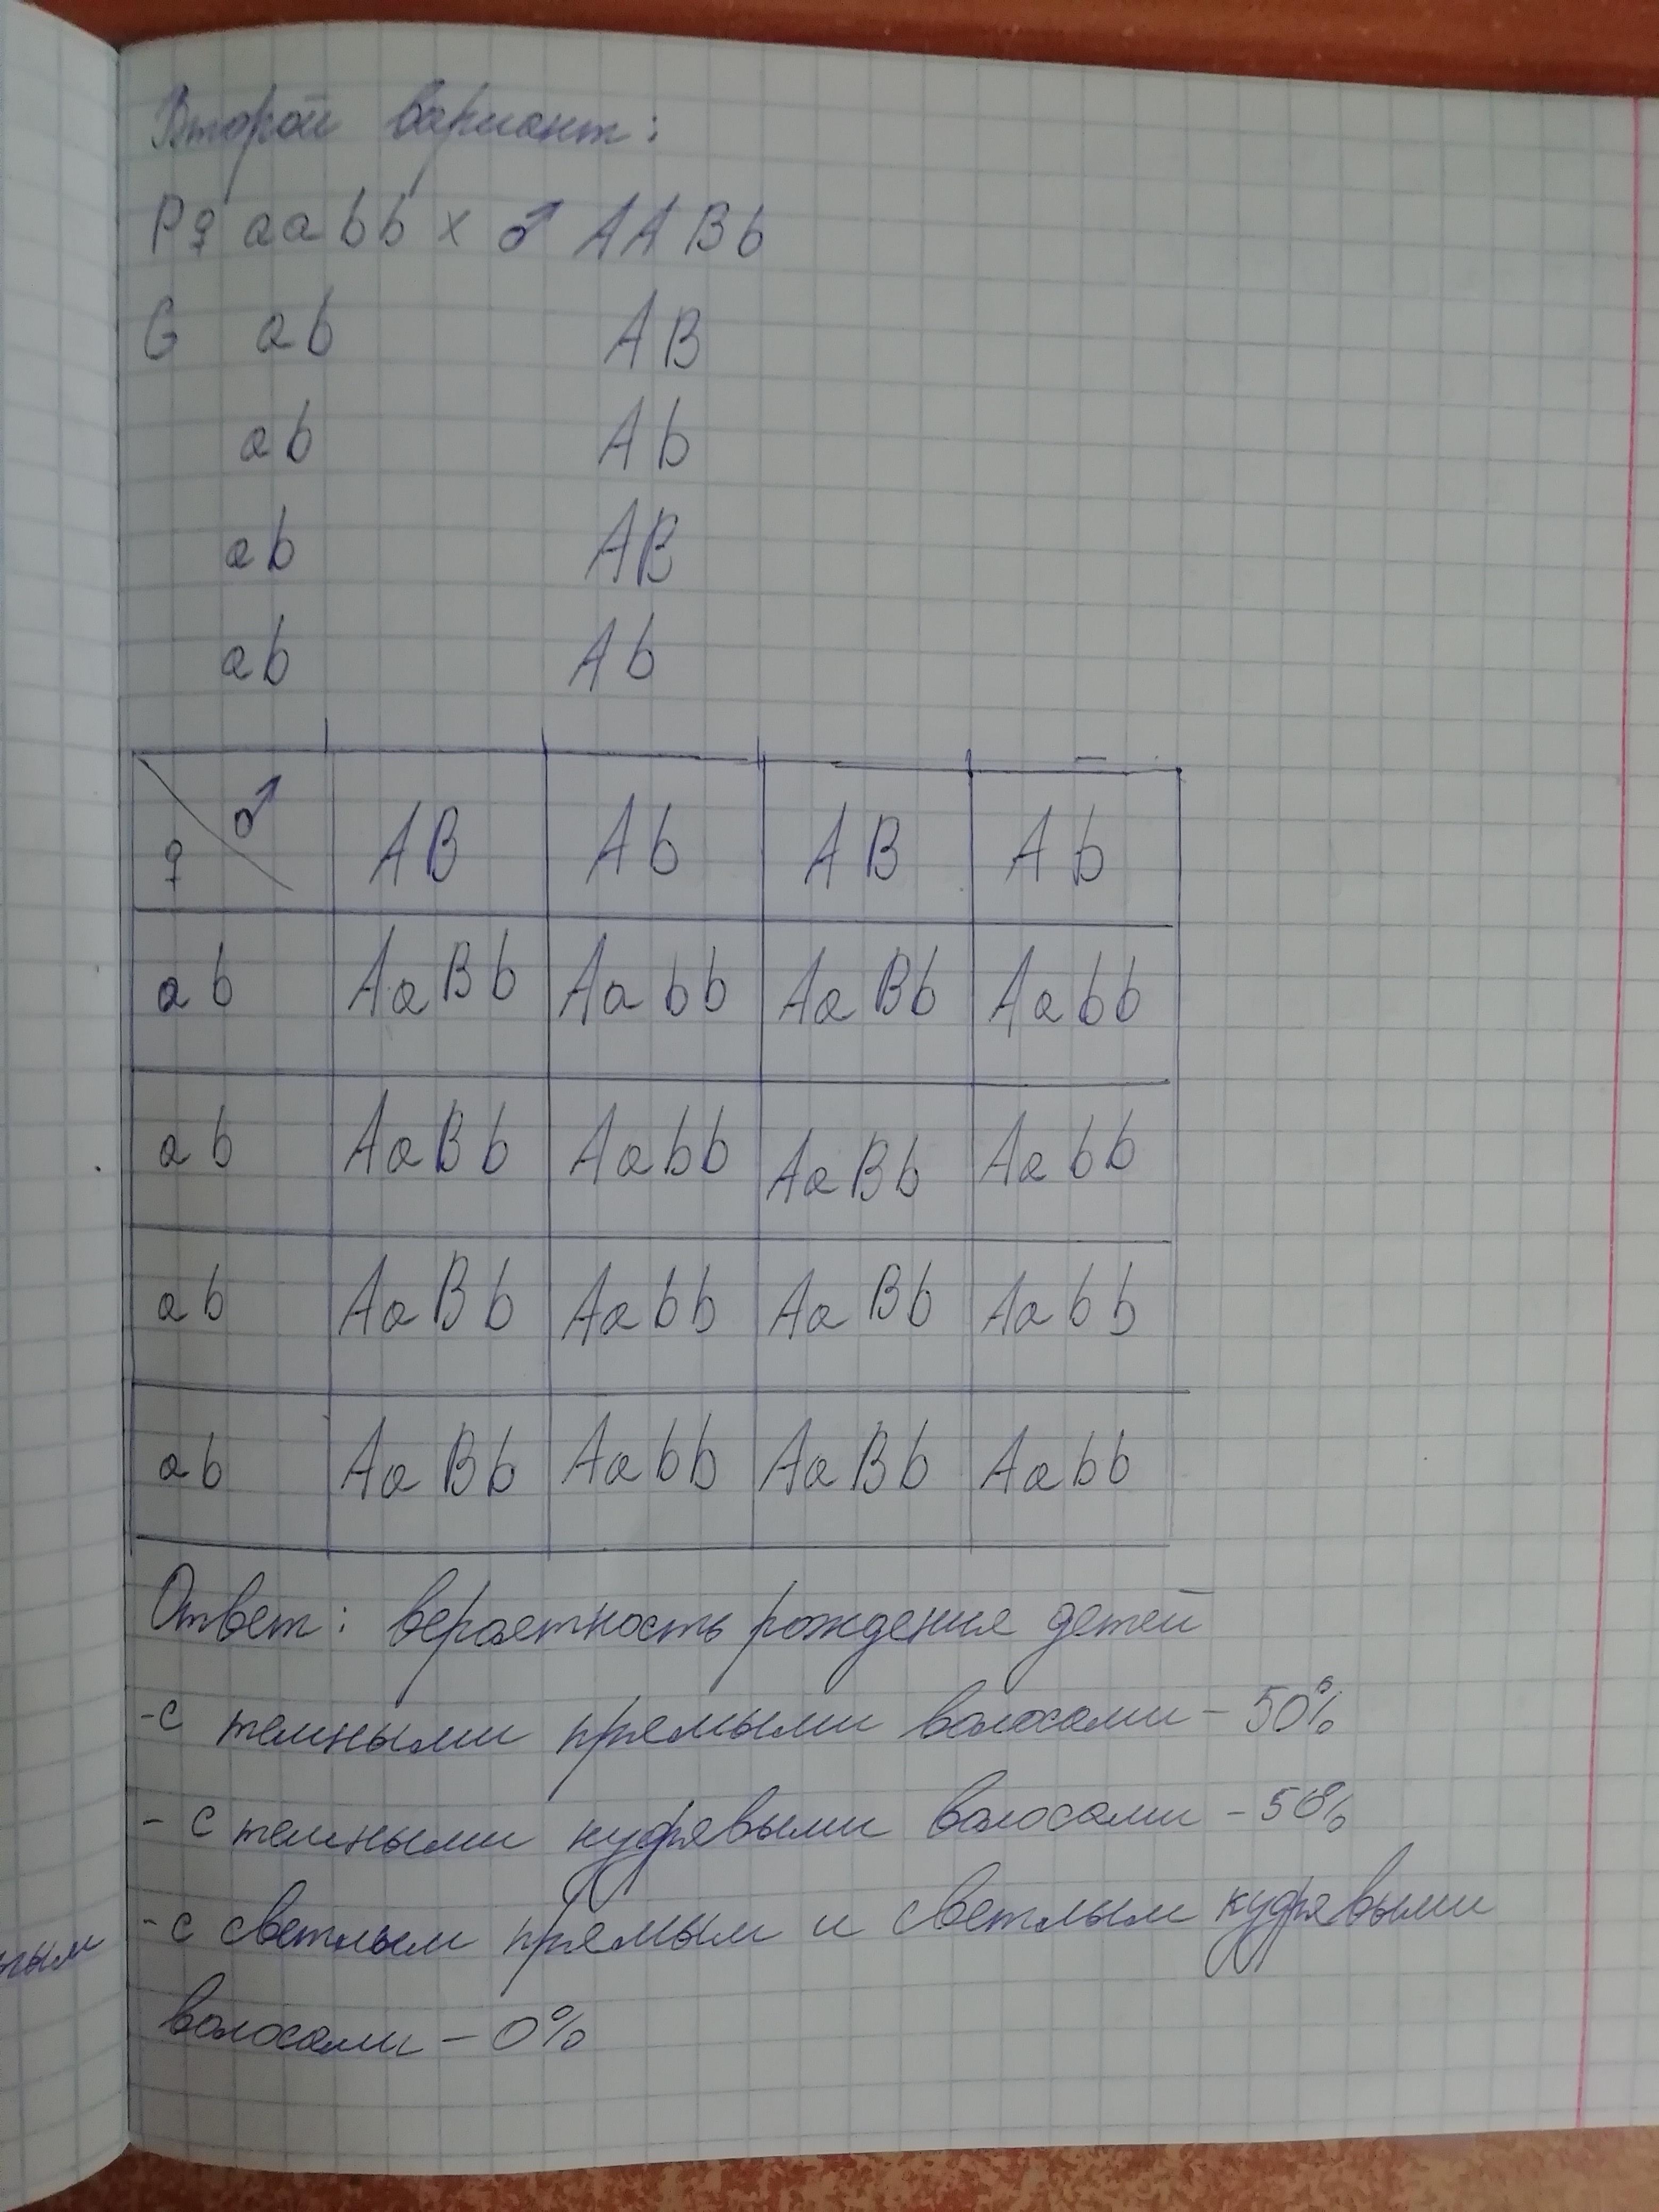 Второй вариант:
P♀ aabb x ♂ AABb
G ab AB
ab Ab
ab AB
ab Ab
♀ ♂ AB Ab AB Ab
ab AaBb Aabb AaBb Aabb
ab AaBb Aabb AaBb Aabb
ab AaBb Aabb AaBb Aabb
ab AaBb Aabb AaBb Aabb
Ответ: вероятность рождения детей
-с темными прямыми волосами - 50%
- с темными кудрявыми волосами - 50%
-с светлым прямым и светлым кудрявыми
волосами - 0%